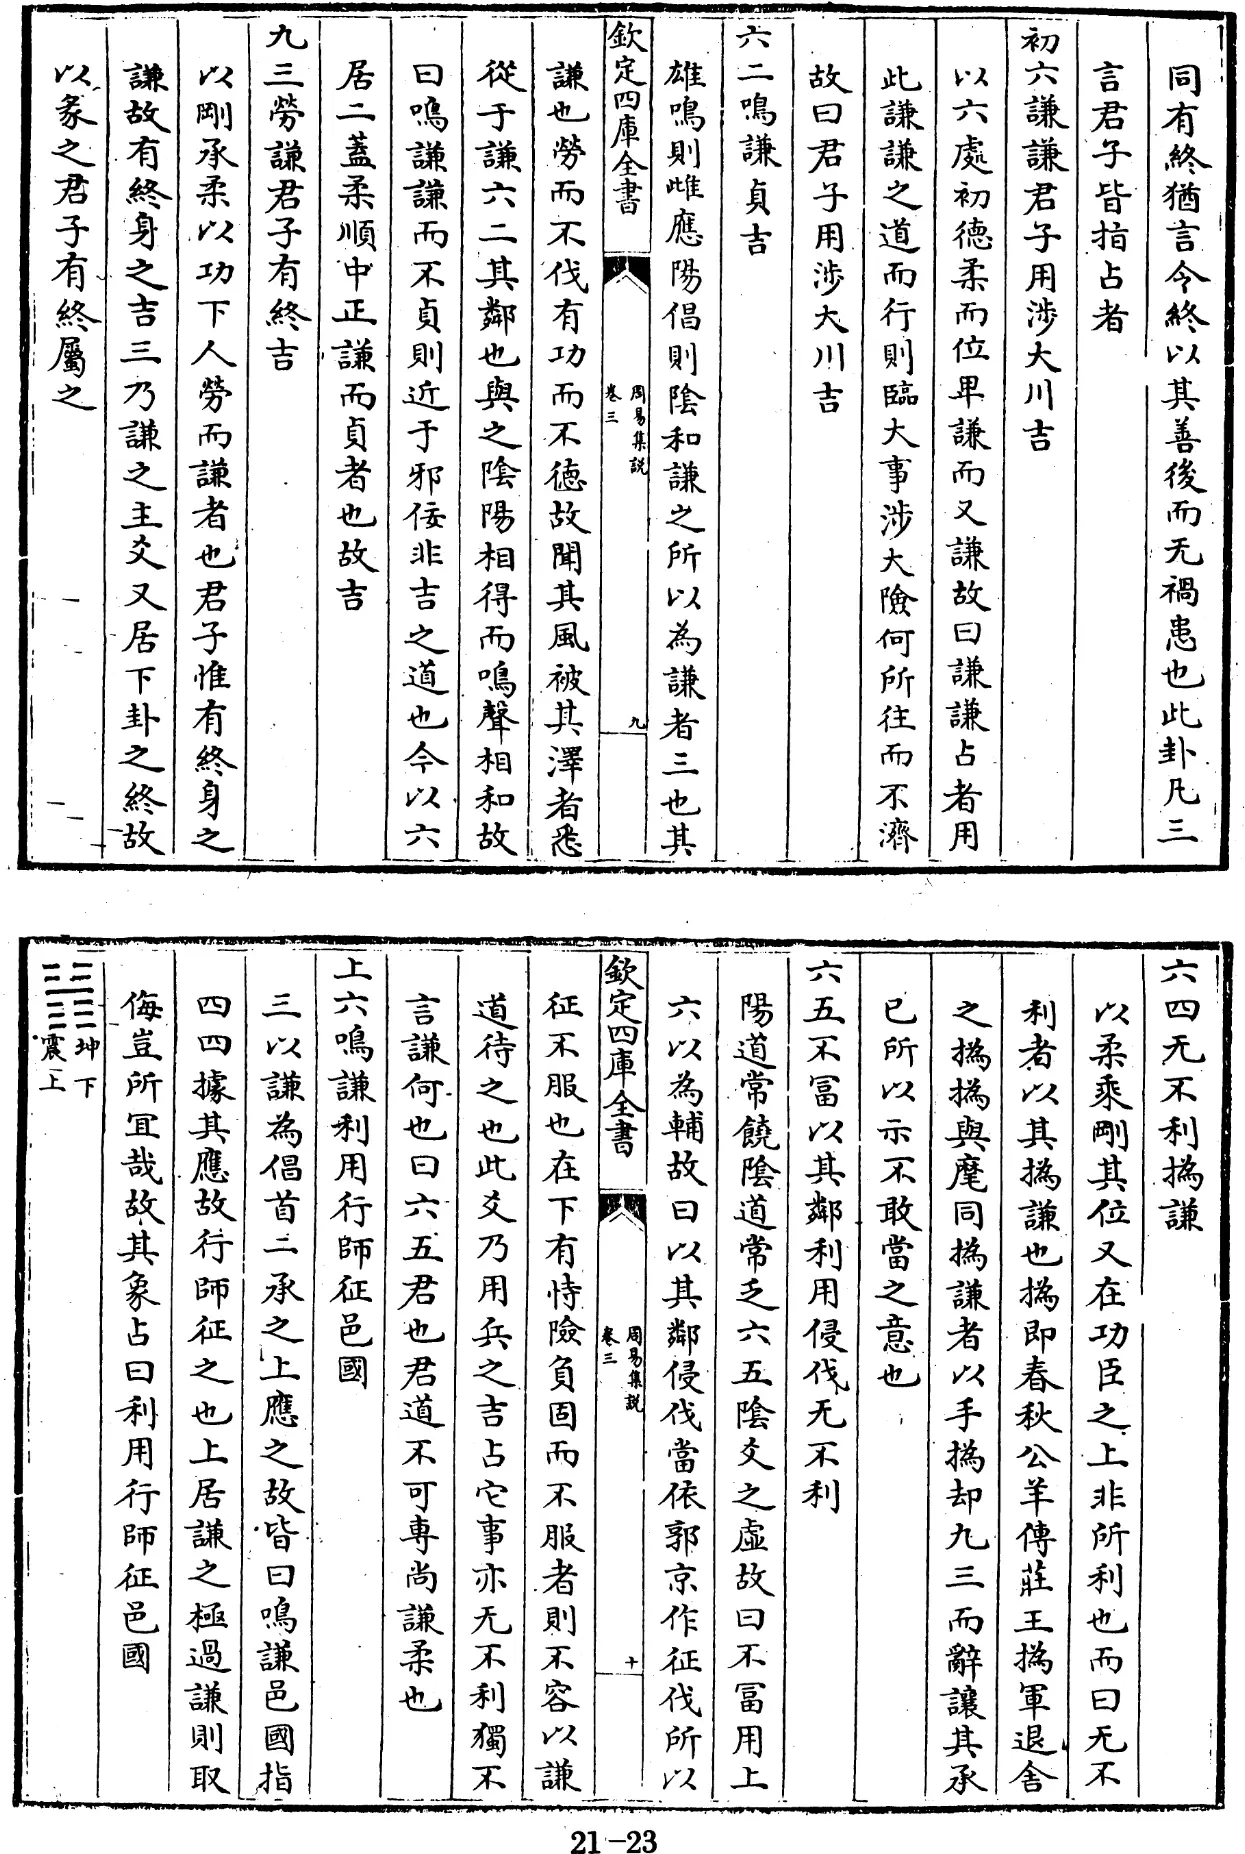 同有終猶言令終以其善後而无禍患也此卦凡三
言君子皆指占者
初六謙謙君子用涉大川吉
以六處初德柔而位卑謙而又謙故曰謙謙占者用
此謙謙之道而行則臨大事涉大險何所往而不濟
故曰君子用涉大川吉
六二鳴謙貞吉
雄鳴則雌應陽倡則陰和謙之所以為謙者三也其
欽定四庫全書
周易集説
卷三
九
謙也勞而不伐有功而不德故聞其風被其澤者悉
從于謙六二其鄰也與之陰陽相得而鳴聲相和故
曰鳴謙謙而不貞則近于邪佞非吉之道也今以六
居二蓋柔順中正謙而貞者也故吉
九三勞謙君子有終吉
以剛承柔以功下人勞而謙者也君子惟有終身之
謙故有終身之吉三乃謙之主爻又居下卦之終故
以象之君子有終屬之
六四无不利撝謙
以柔乘剛其位又在功臣之上非所利也而曰无不
利者以其撝謙也撝即春秋公羊傳莊王撝軍退舍
之撝撝與麾同撝謙者以手撝却九三而辭讓其承
已所以示不敢當之意也
六五不冨以其鄰利用侵伐无不利
陽道常饒陰道常乏六五陰爻之虛故曰不冨用上
六以為輔故曰以其鄰侵伐當依郭京作征伐所以
欽定四庫全書
周易集説
卷三
十
征不服也在下有恃險負固而不服者則不容以謙
道待之也此爻乃用兵之吉占它事亦无不利獨不
言謙何也曰六五君也君道不可專尚謙柔也
上六鳴謙利用行師征邑國
三以謙為倡首二承之上應之故皆曰鳴謙邑國指
四四據其應故行師征之也上居謙之極過謙則取
侮豈所冝哉故其象占曰利用行師征邑國
坤下
震上
21-23